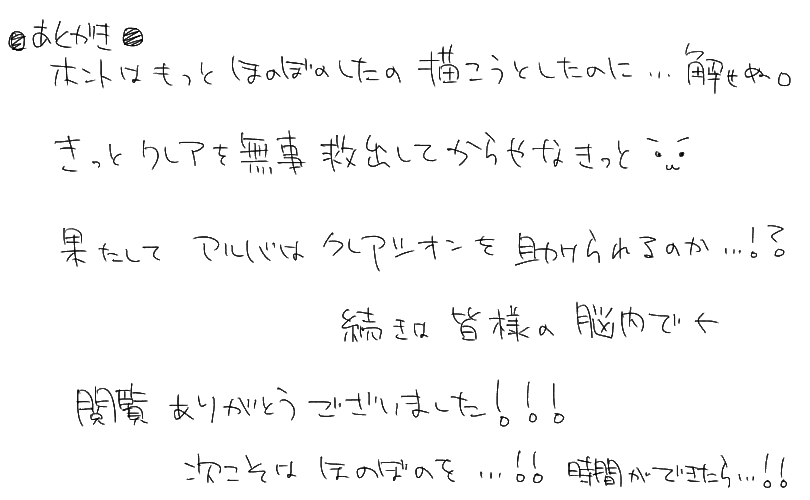 ●あとがき●
ホントはもっとほのぼのしたの描こうとしたのに…解せぬ。
きっとクレアを無事救出してからやなきっと
果たしてアルバはクレアシオンを助けられるのか…!?
続きは皆様の脳内で←
閲覧ありがとうございました!!!
次こそはほのぼのを…!! 時間ができたら…!!